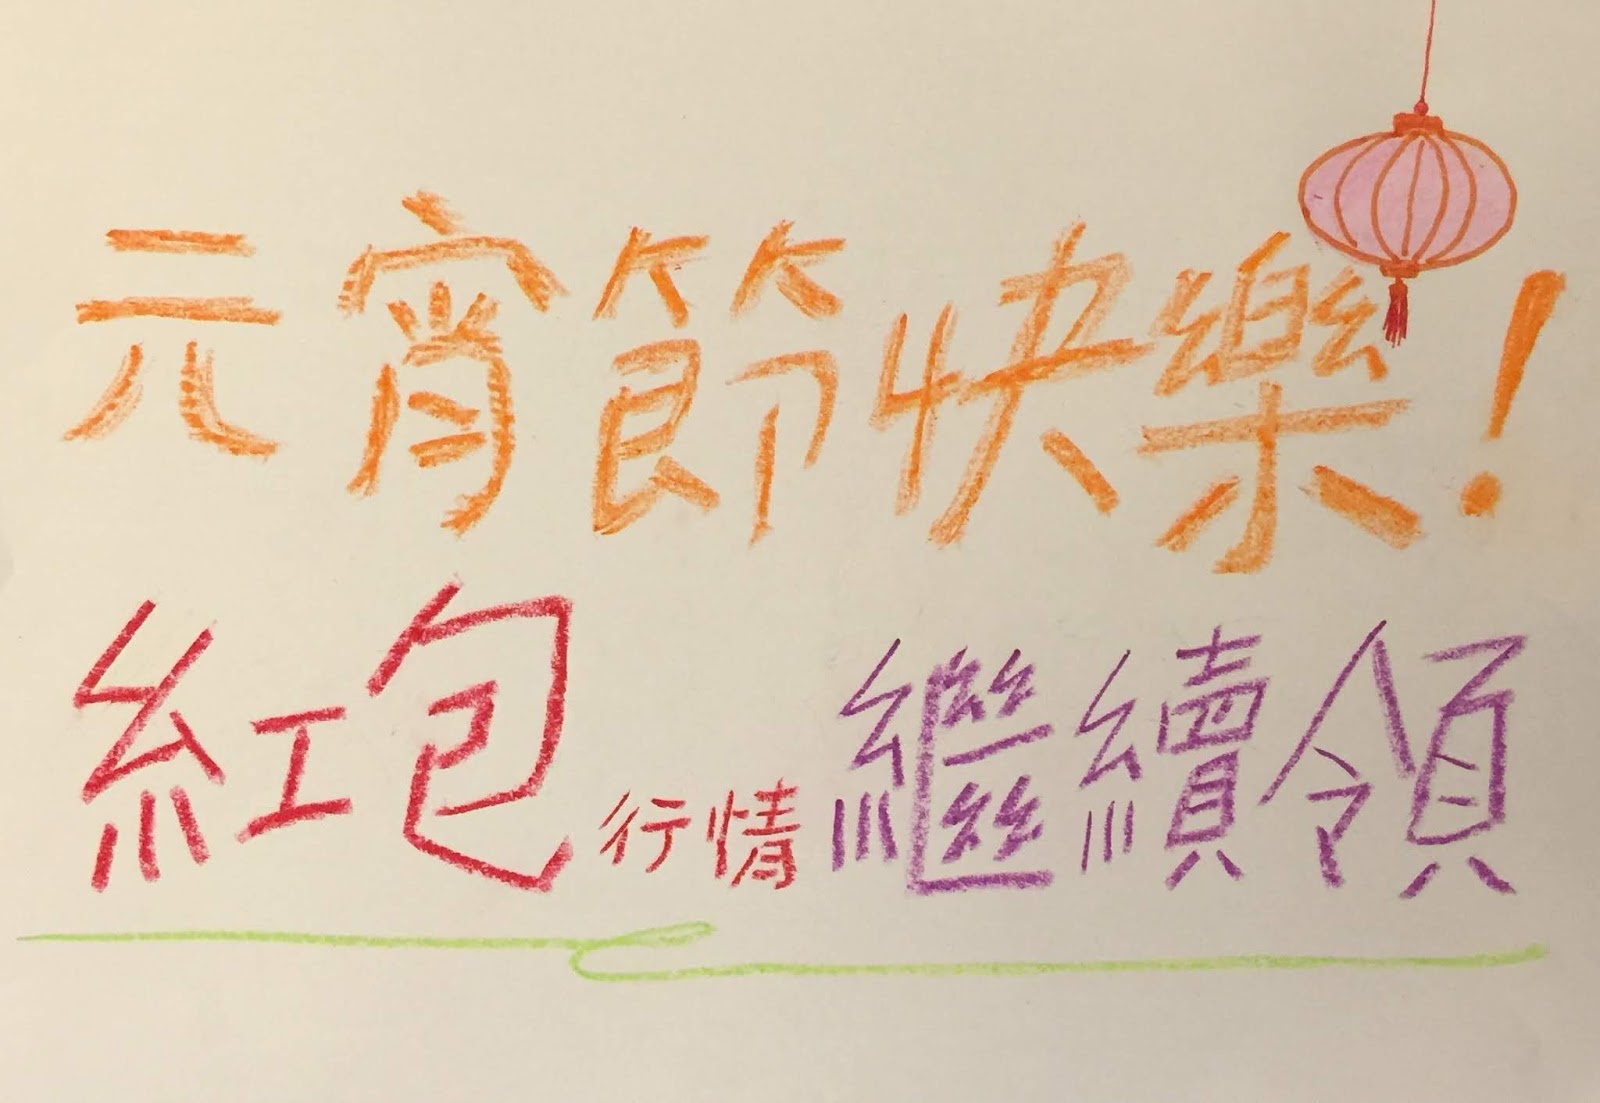 元宵節快樂!
紅包行情繼續領